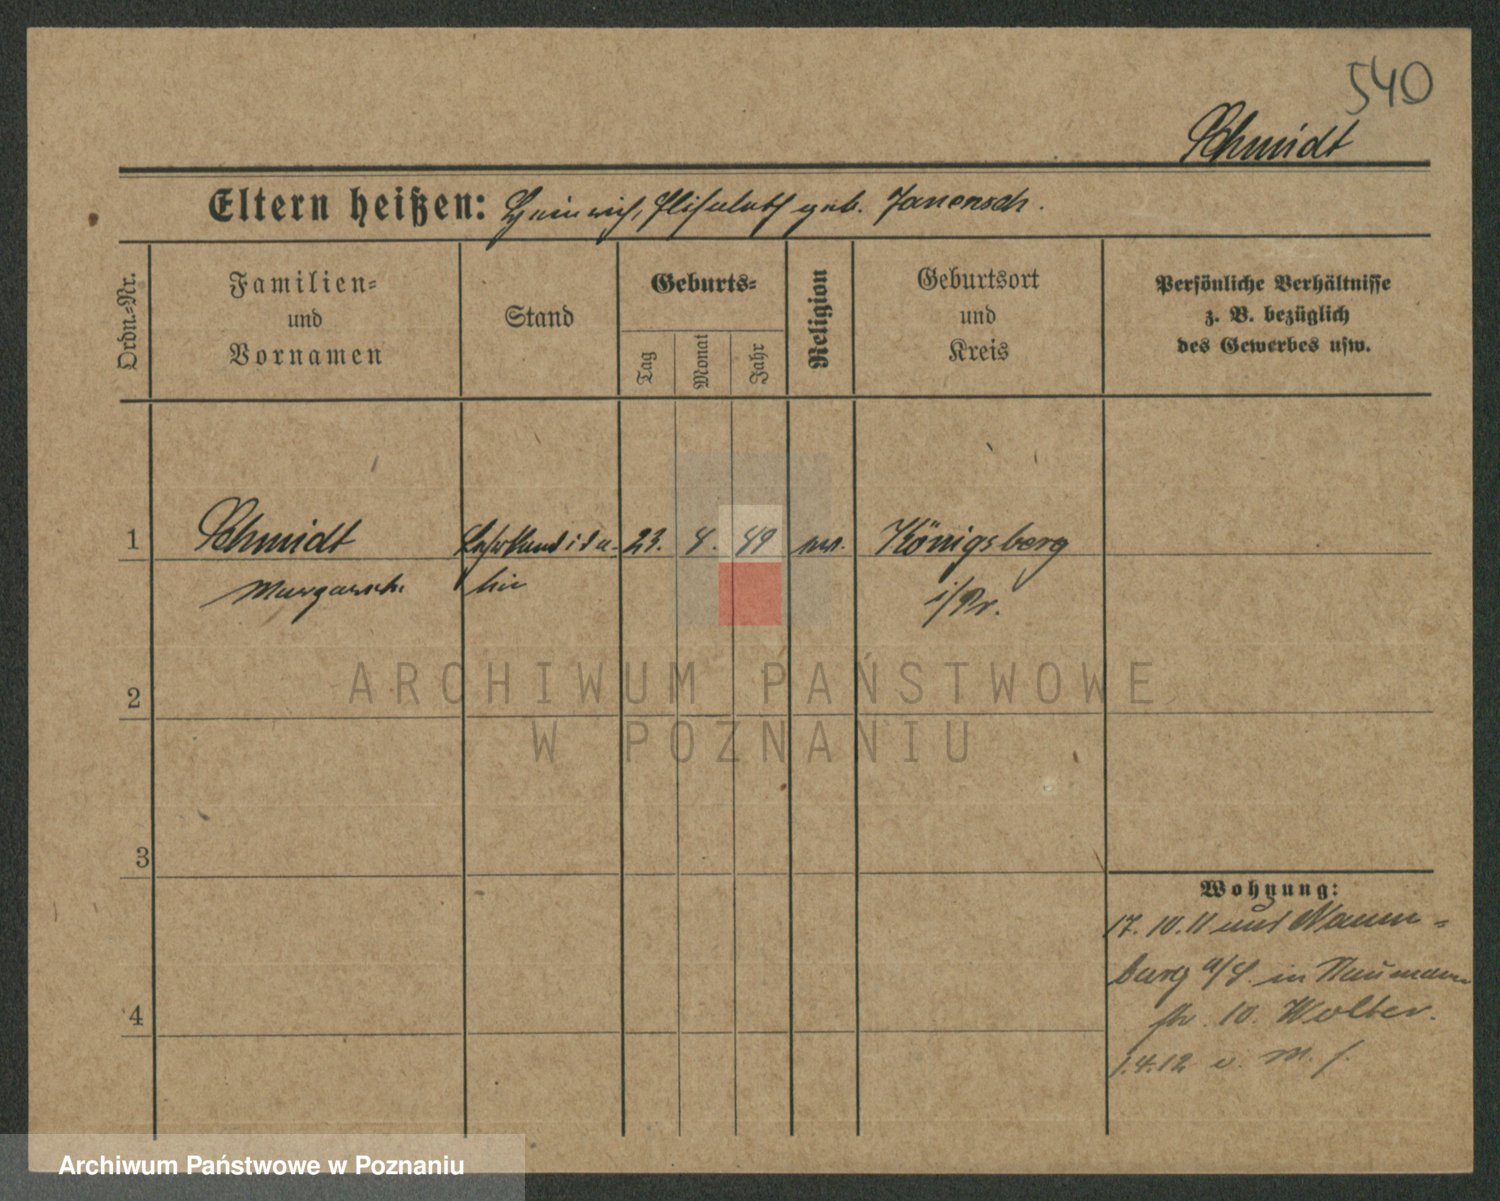 540
Schmidt
Eltern heißen: Heinrich, Elisabeth geb. Janensch.
Ordn.-Nr.
Familien- und Vornamen
Stand
Geburts-
Tag
Monat
Jahr
Religion
Geburtsort und Kreis
Persönliche Verhältnisse
z. B. bezüglich
des Gewerbes usw.
1 Schmidt 23. 4. 89 ev. Königsberg
Margarete i/Pr.
2
3
4
Wohnung:
17. 10. 11 aus Naum-
burg a/S. in Naumann
str. 10. Wolter.
1.4.12 v.
ARCHIWUM PAŃSTWOWE
W POZNANIU
Archiwum Państwowe w Poznaniu